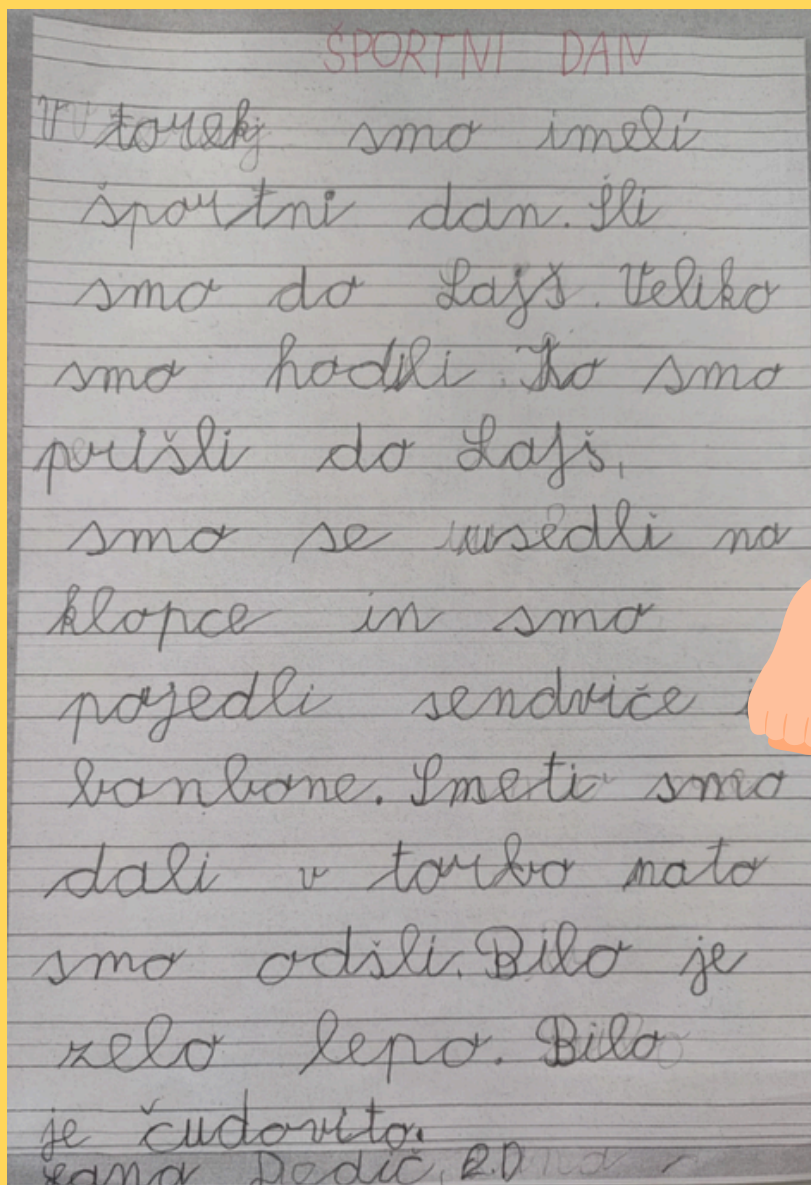 ŠPORTNI DAN
V torek smo imeli
športni dan. Šli
smo do Lajš. Veliko
smo hodili. Ko smo
prišli do Lajš,
smo se usedli na
klopce in smo
pojedli sendviče
banbone. Smeti smo
dali v torbo nato
smo odšli. Bilo je
zelo lepo. Bilo
je čudovito.
Dedič, 2.D